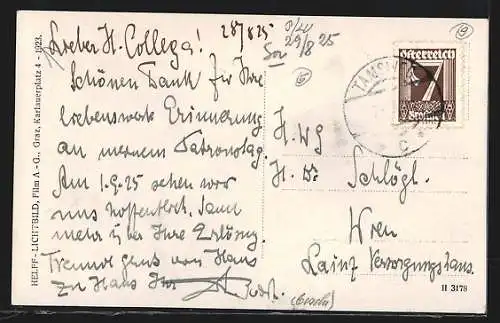 Lieber H. Collega!
28/8 25
29/8 25
Schönen Dank für Ihre
liebenswerte Erinnerung
an meinem Patronstag.
Am 1.9.25 sehen wir
uns hoffentlich. Dann
mehr über Ihre Erlösung.
von Haus
zu Haus Ihr
Österreich
7
Groschen
TAMSW
H. Wg
H. Dr. Schlögl.
Wien
Lainz Versorgungshaus.
HELFF - LICHTBILD, Film A.-G., Graz, Karlauerplatz 4 - 1923.
H 3178